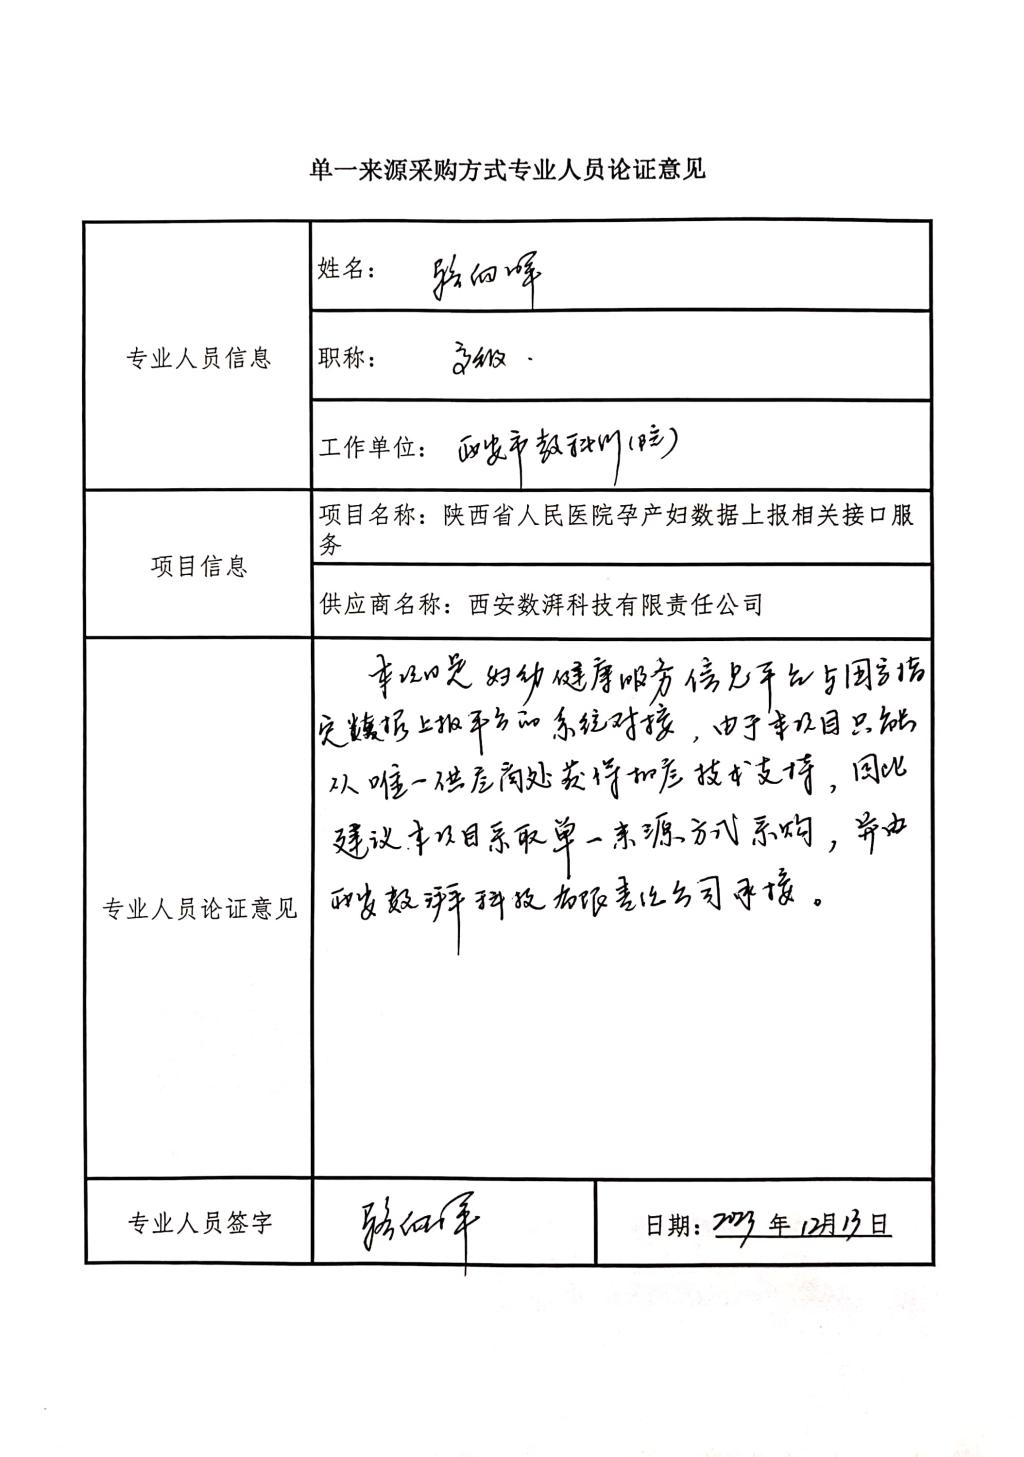 单一来源采购方式专业人员论证意见
专业人员信息
姓名：骆向晖
职称：高级
工作单位：西安市教科所(院)
项目信息
项目名称：陕西省人民医院孕产妇数据上报相关接口服
务
供应商名称：西安数湃科技有限责任公司
专业人员论证意见
本项目是妇幼健康服务信息平台与国家指
定数据上报平台的系统对接，由于本项目只能
从唯一供应商处获得相应技术支持，因此
建议本项目采取单一来源方式采购，并由
西安数湃科技有限责任公司承接。
专业人员签字
骆向晖
日期：2023年12月13日